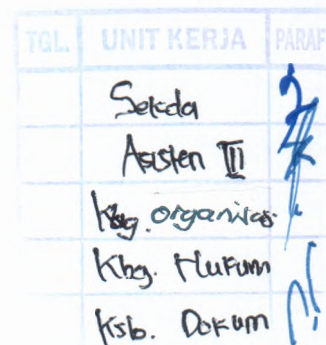 TGL. UNIT KERJA PARAF
Sekda
Asisten III
Kbg. organisasi
Kbg. Hukum
Ksb. Dokum